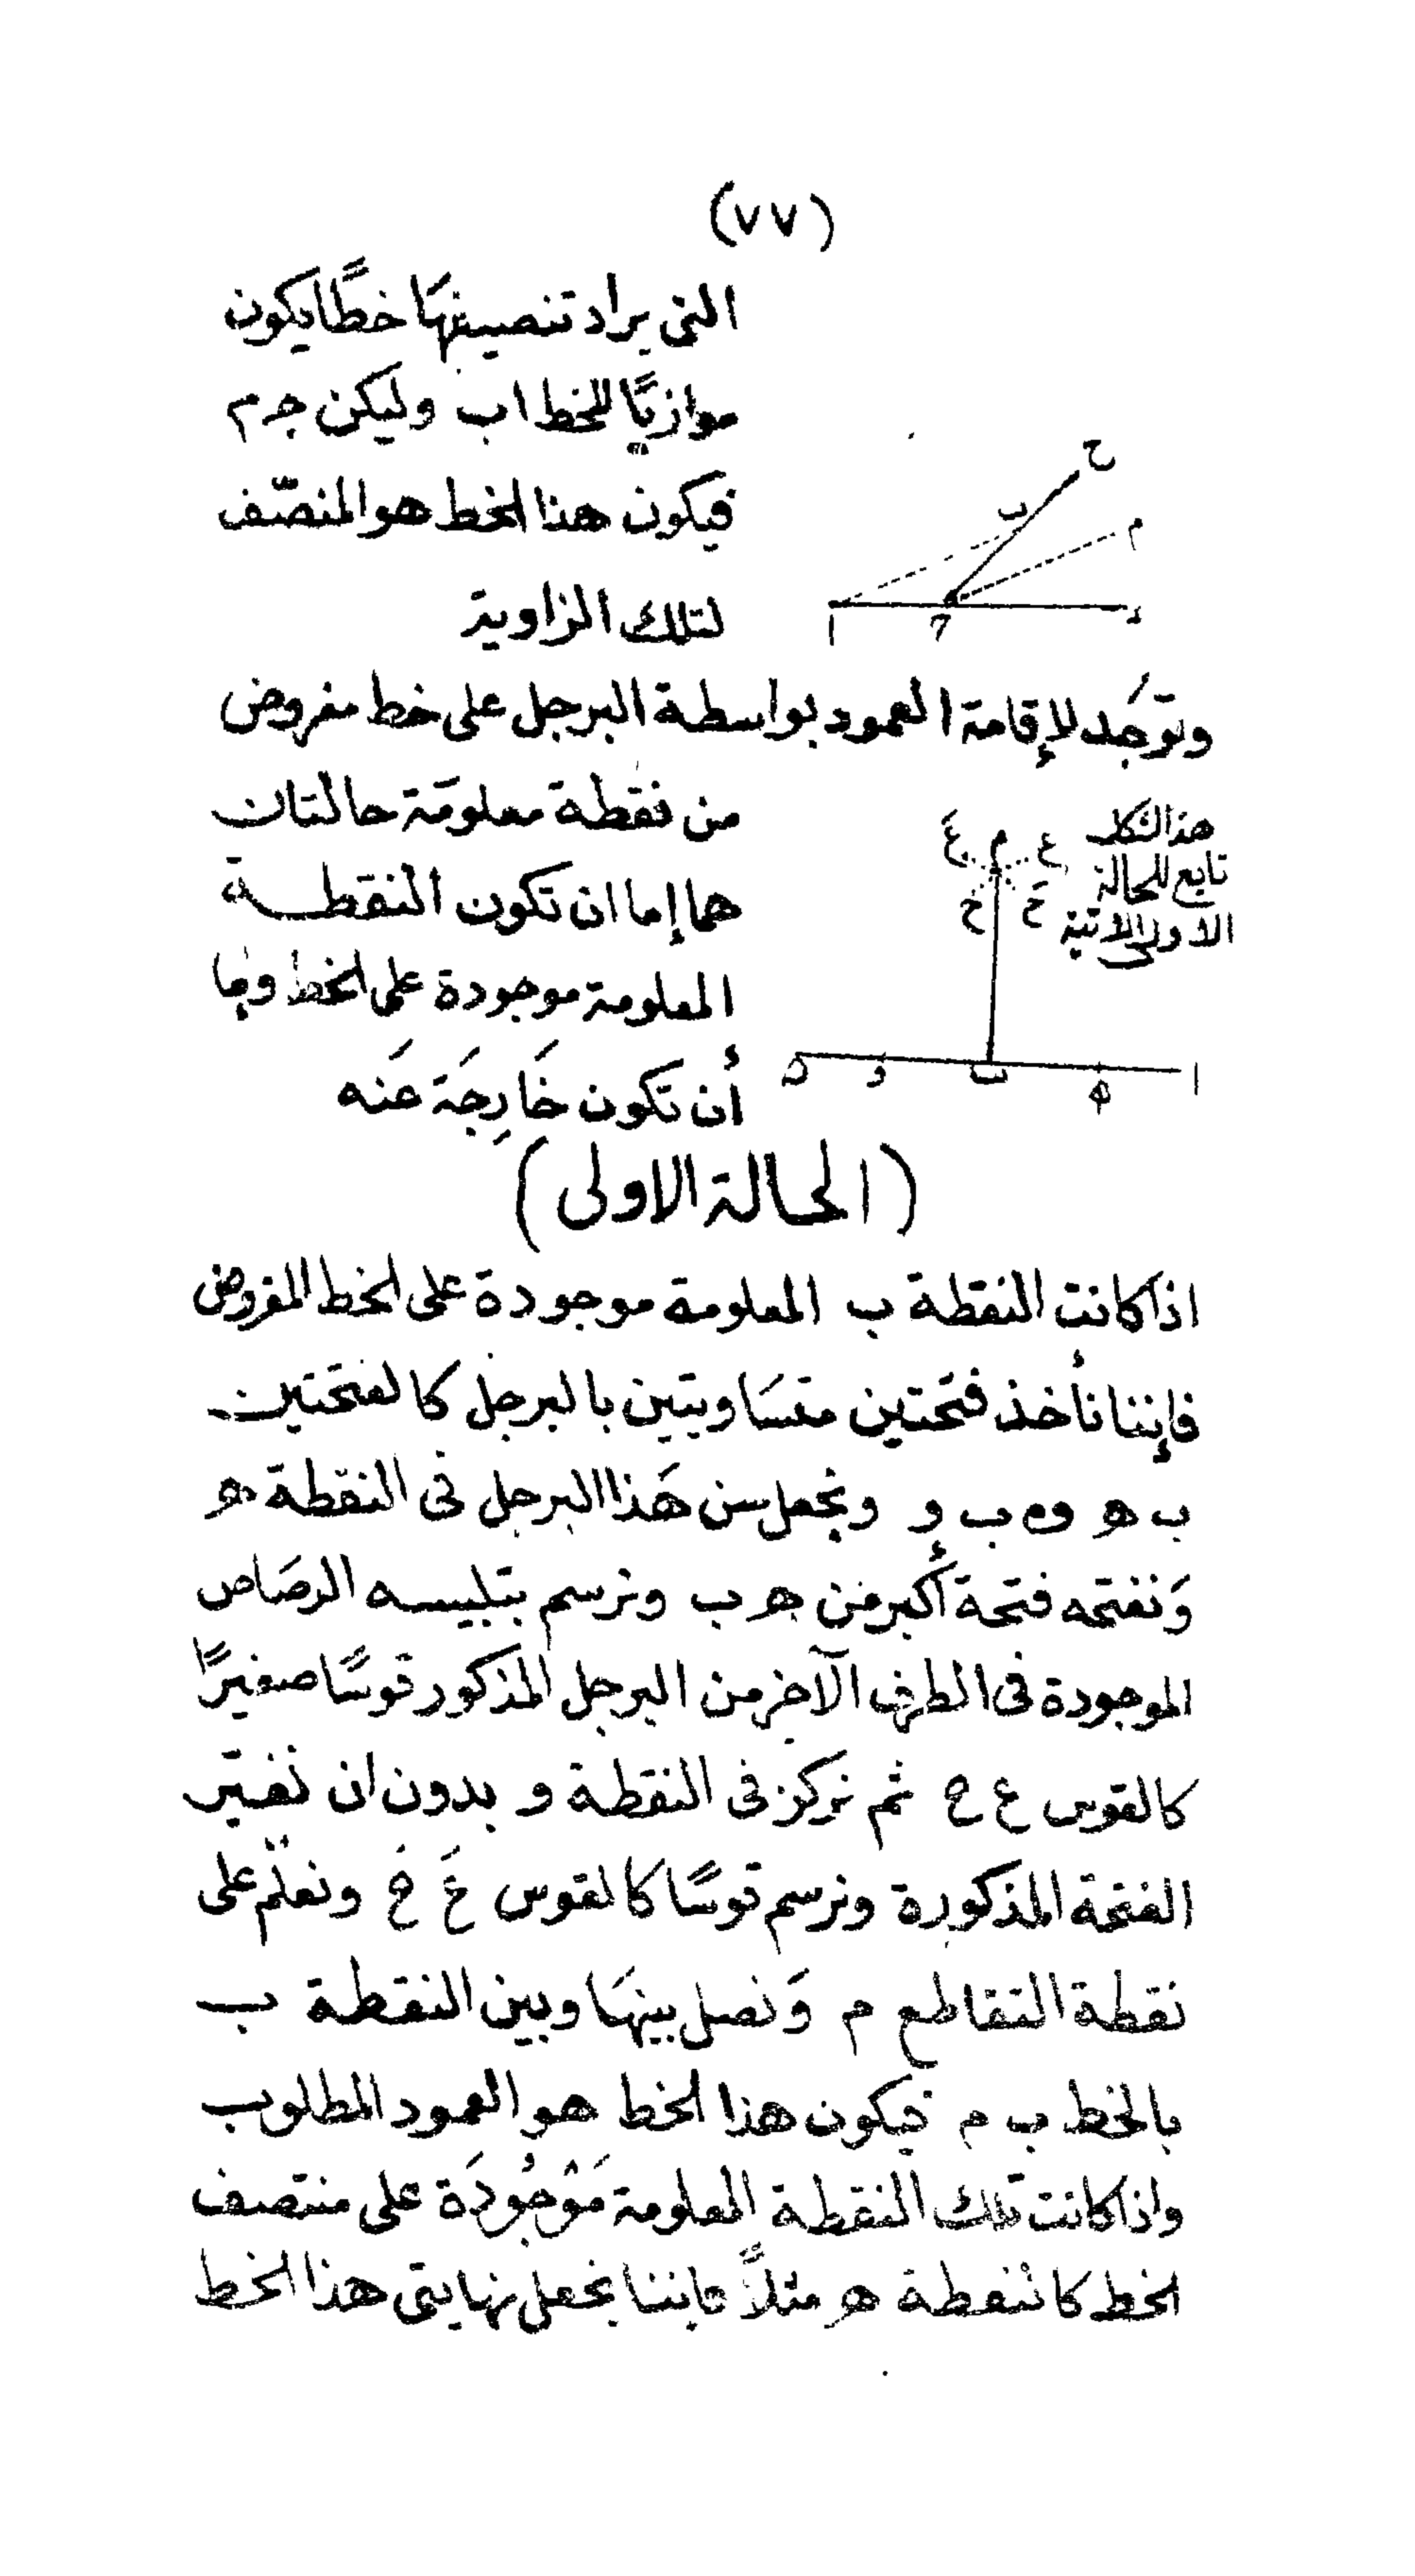 (٧٧)
التى يراد تنصيفهَا خطًا يكون
موازيًا للخط اب وليكن جـ م
فيكون هذا الخط هو المنصّف
لتلك الزاوية
ح
ب
م
ا
د
وتوجَد لإقامة العمود بواسطة البرجل على خط مفروض
من نقطة معلومَة حالتان
هما إما ان تكون النقطة
المعلومة موجودة على الخط وإما
أن تكون خَارِجَة عَنه
هذا الشكل
تابع للحالة
الاولى الاتية
ع م عَ
حَ ح
ا ه ب و
(الحالة الاولى)
اذا كانت النقطة ب المعلومة موجودة على الخط المفروض
فإننا نأخذ فتحتين متسَاويتين بالبرجل كالفتحتين
ب هـ و ب و ونجعل سن هَذا البرجل فى النقطة هـ
وَنفتحه فتحة أكبر من هـ ب ونرسم بتلبيسه الرصَاص
الموجودة فى الطرف الآخر من البرجل المذكور قوسًا صغيرًا
كالقوس ع ح ثم نركز فى النقطة و بدون ان نغيّر
الفتحة المذكورة ونرسم قوسًا كالقوس عَ حَ ونعلّم على
نقطة التقاطع م وَنصل بينهَا وبين النقطة ب
بالخط ب م فيكون هذا الخط هو العمود المطلوب
واذا كانت تلك النقطة المعلومة مَوْجُودَة على منتصف
الخط كالنقطة هـ مثلاً فاننا نجعل نهايتى هذا الخط